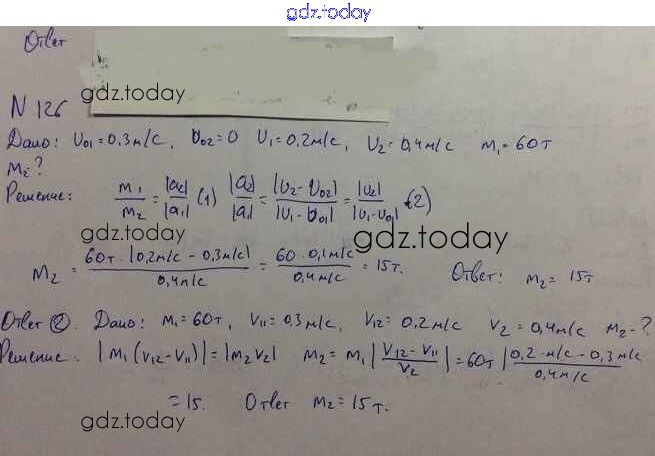 gdz.today
Ответ
gdz.today
N 126
Дано: υ₀₁=0.3м/с, υ₀₂=0 υ₁=0.2м/с, υ₂=0,4м/с m₁=60т
m₂?
Решение: m₁/m₂=|a₂|/|a₁| (1) |a₂|/|a₁|=|υ₂-υ₀₂|/|υ₁-υ₀₁|=|υ₂|/|υ₁-υ₀₁| (2)
gdz.today
m₂=60т·|0,2м/с-0,3м/с|/0,4м/с=60·0,1м/с/0,4м/с=15т. Ответ: m₂=15т
gdz.today
Ответ ②. Дано: m₁=60т, v₁₁=0.3м/с, v₁₂=0.2м/с v₂=0,4м/с m₂-?
Решение: |m₁(v₁₂-v₁₁)|=|m₂v₂| m₂=m₁|v₁₂-v₁₁/v₂|=60т|0,2м/с-0,3м/с/0,4м/с
=15. Ответ m₂=15т.
gdz.today